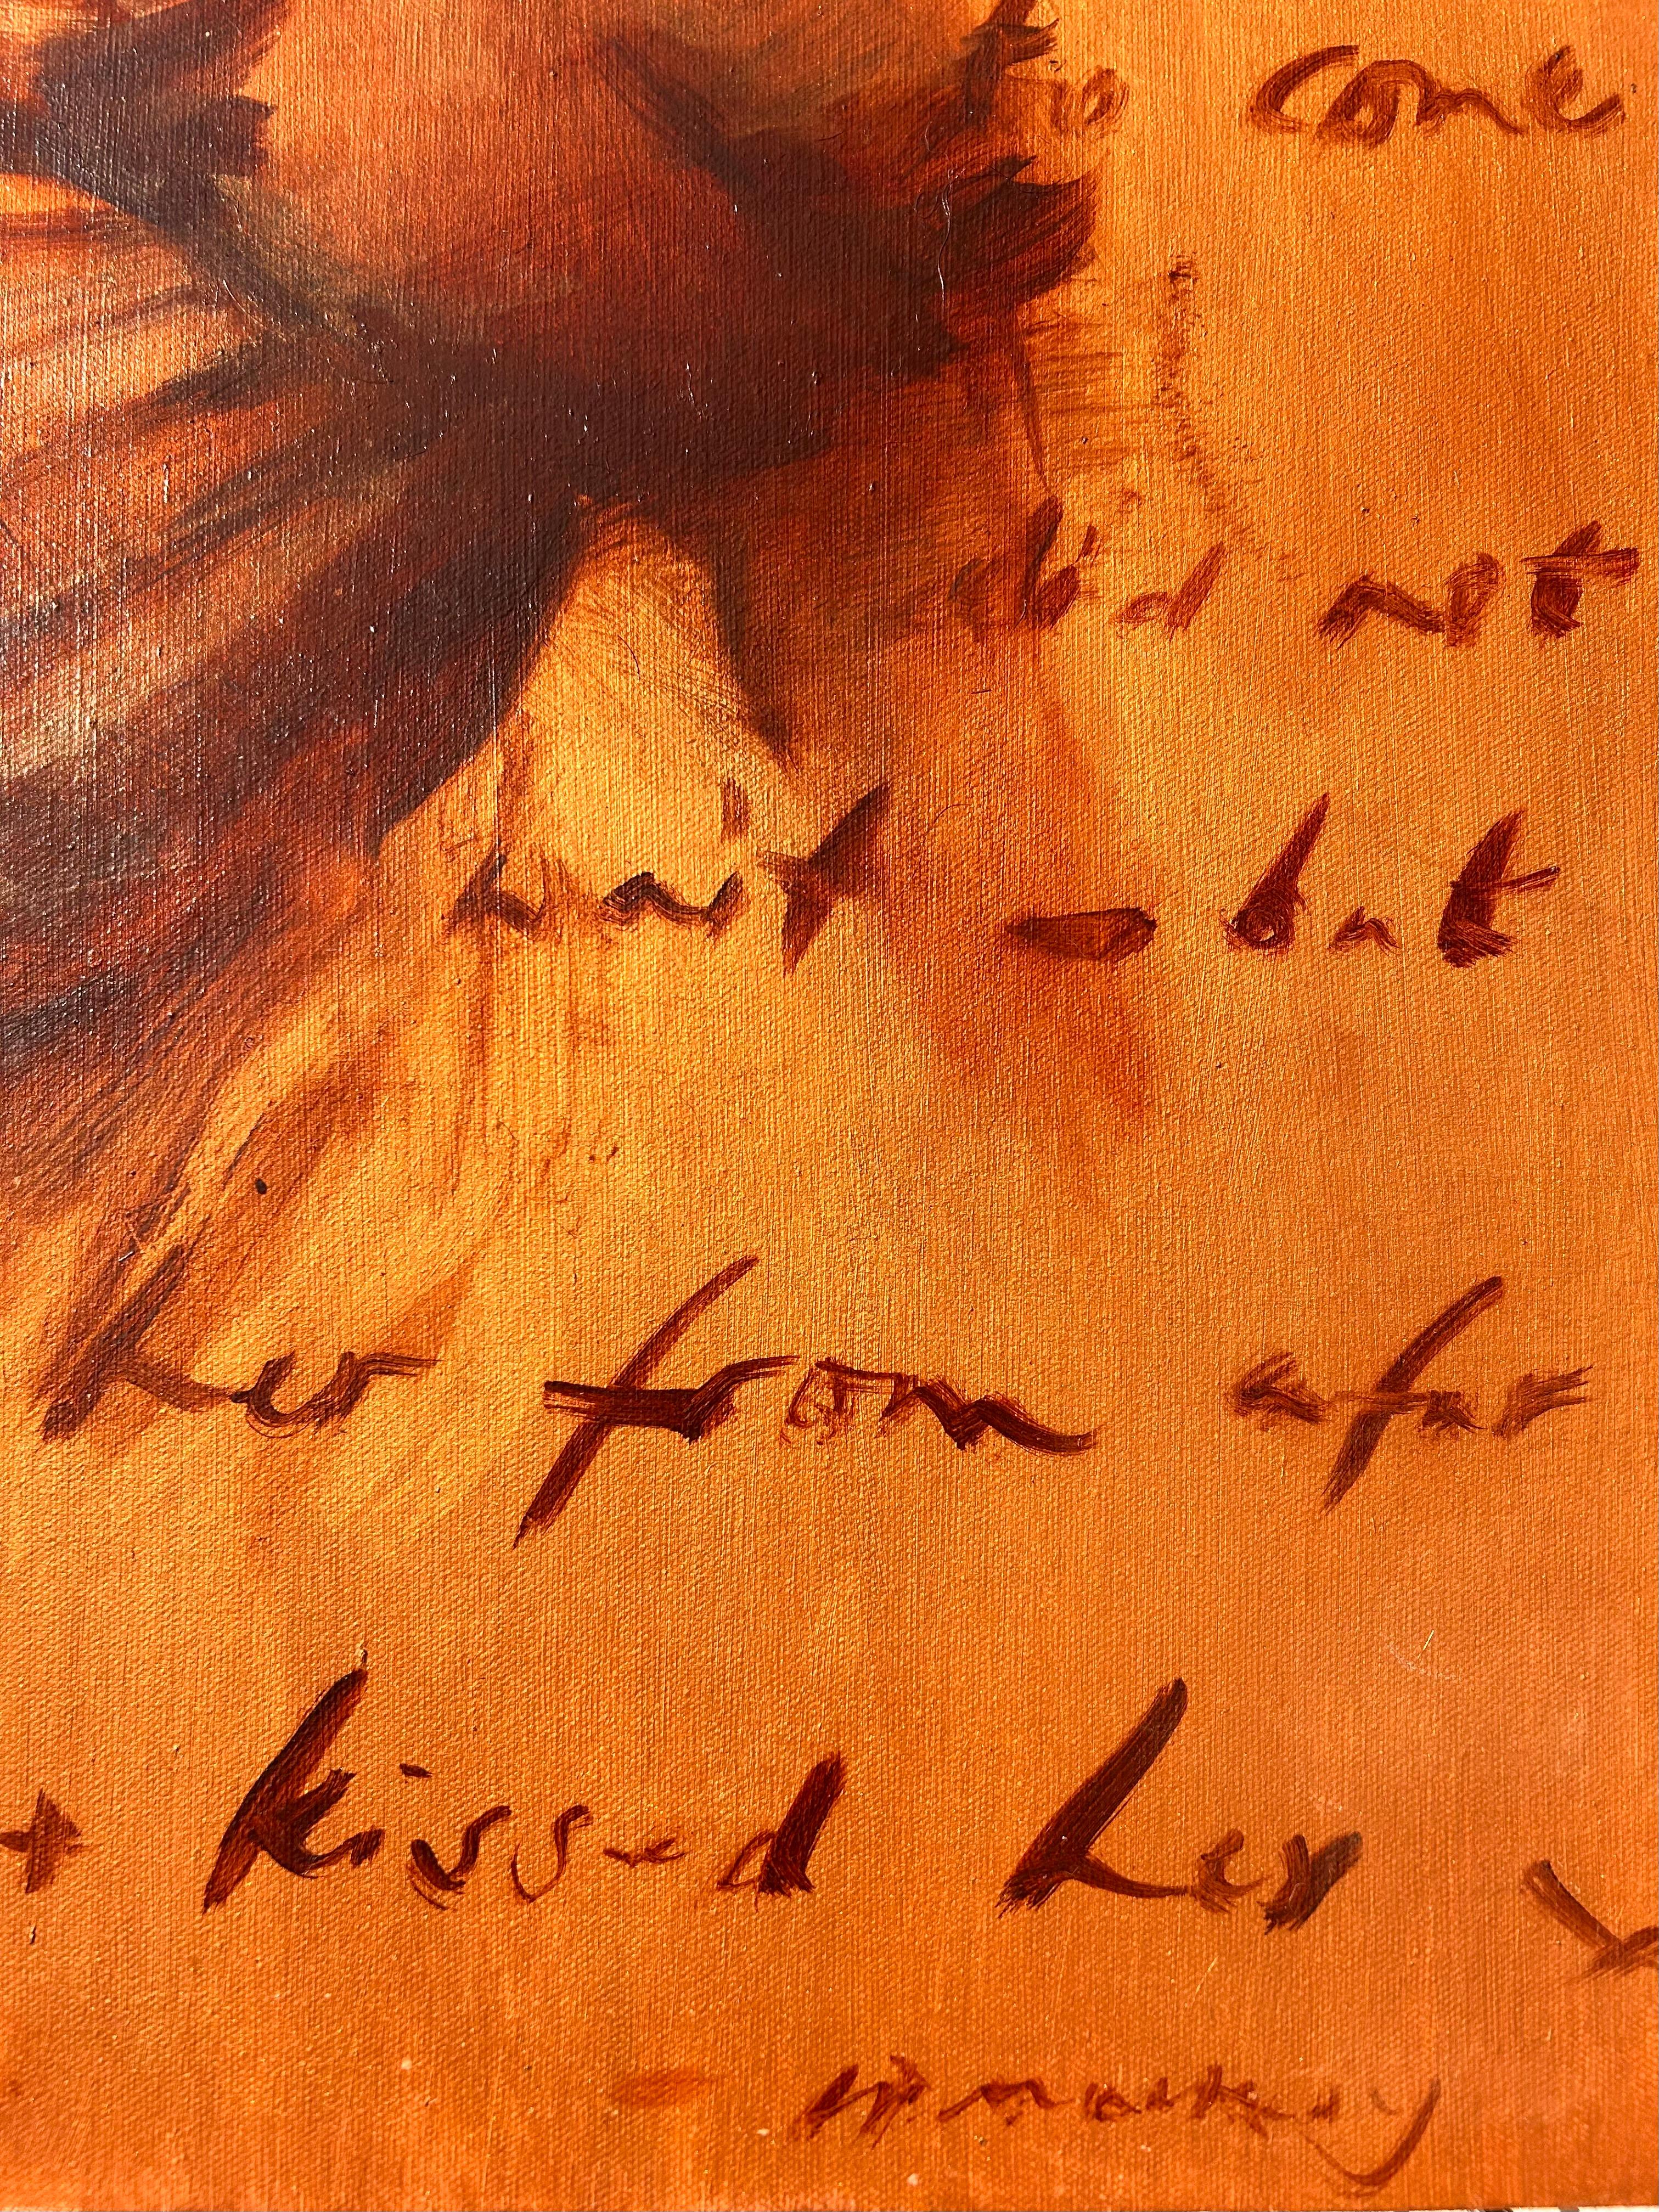 to come
did not
wait - but
her from afar
+ kissed her